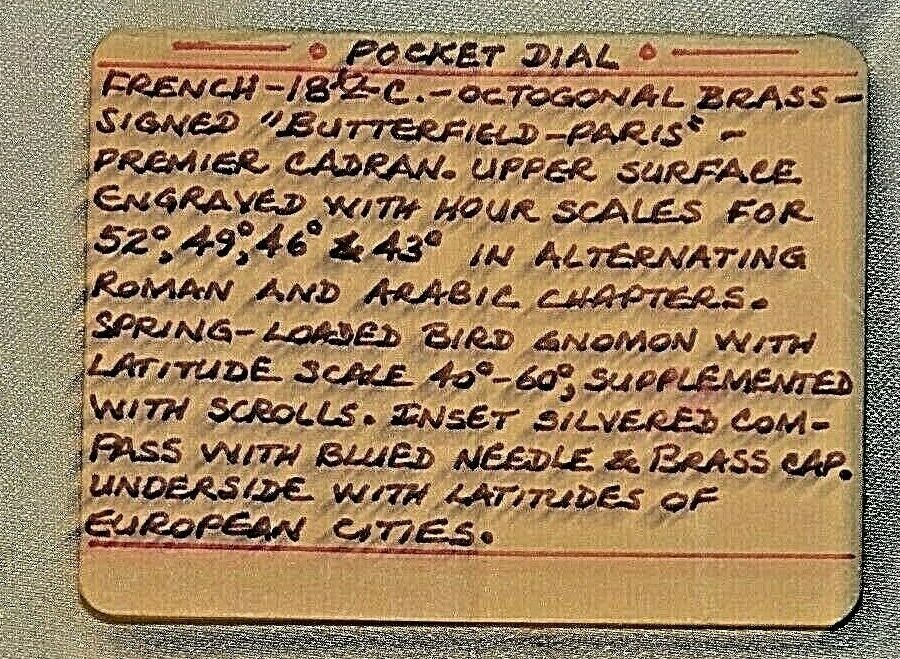 POCKET DIAL
FRENCH-18th C.-OCTOGONAL BRASS-
SIGNED "BUTTERFIELD-PARIS" -
PREMIER CADRAN. UPPER SURFACE
ENGRAVED WITH HOUR SCALES FOR
52°, 49°, 46° & 43° IN ALTERNATING
ROMAN AND ARABIC CHAPTERS.
SPRING-LOADED BIRD GNOMON WITH
LATITUDE SCALE 40°-60°, SUPPLEMENTED
WITH SCROLLS. INSET SILVERED COM-
PASS WITH BLUED NEEDLE & BRASS CAP.
UNDERSIDE WITH LATITUDES OF
EUROPEAN CITIES.